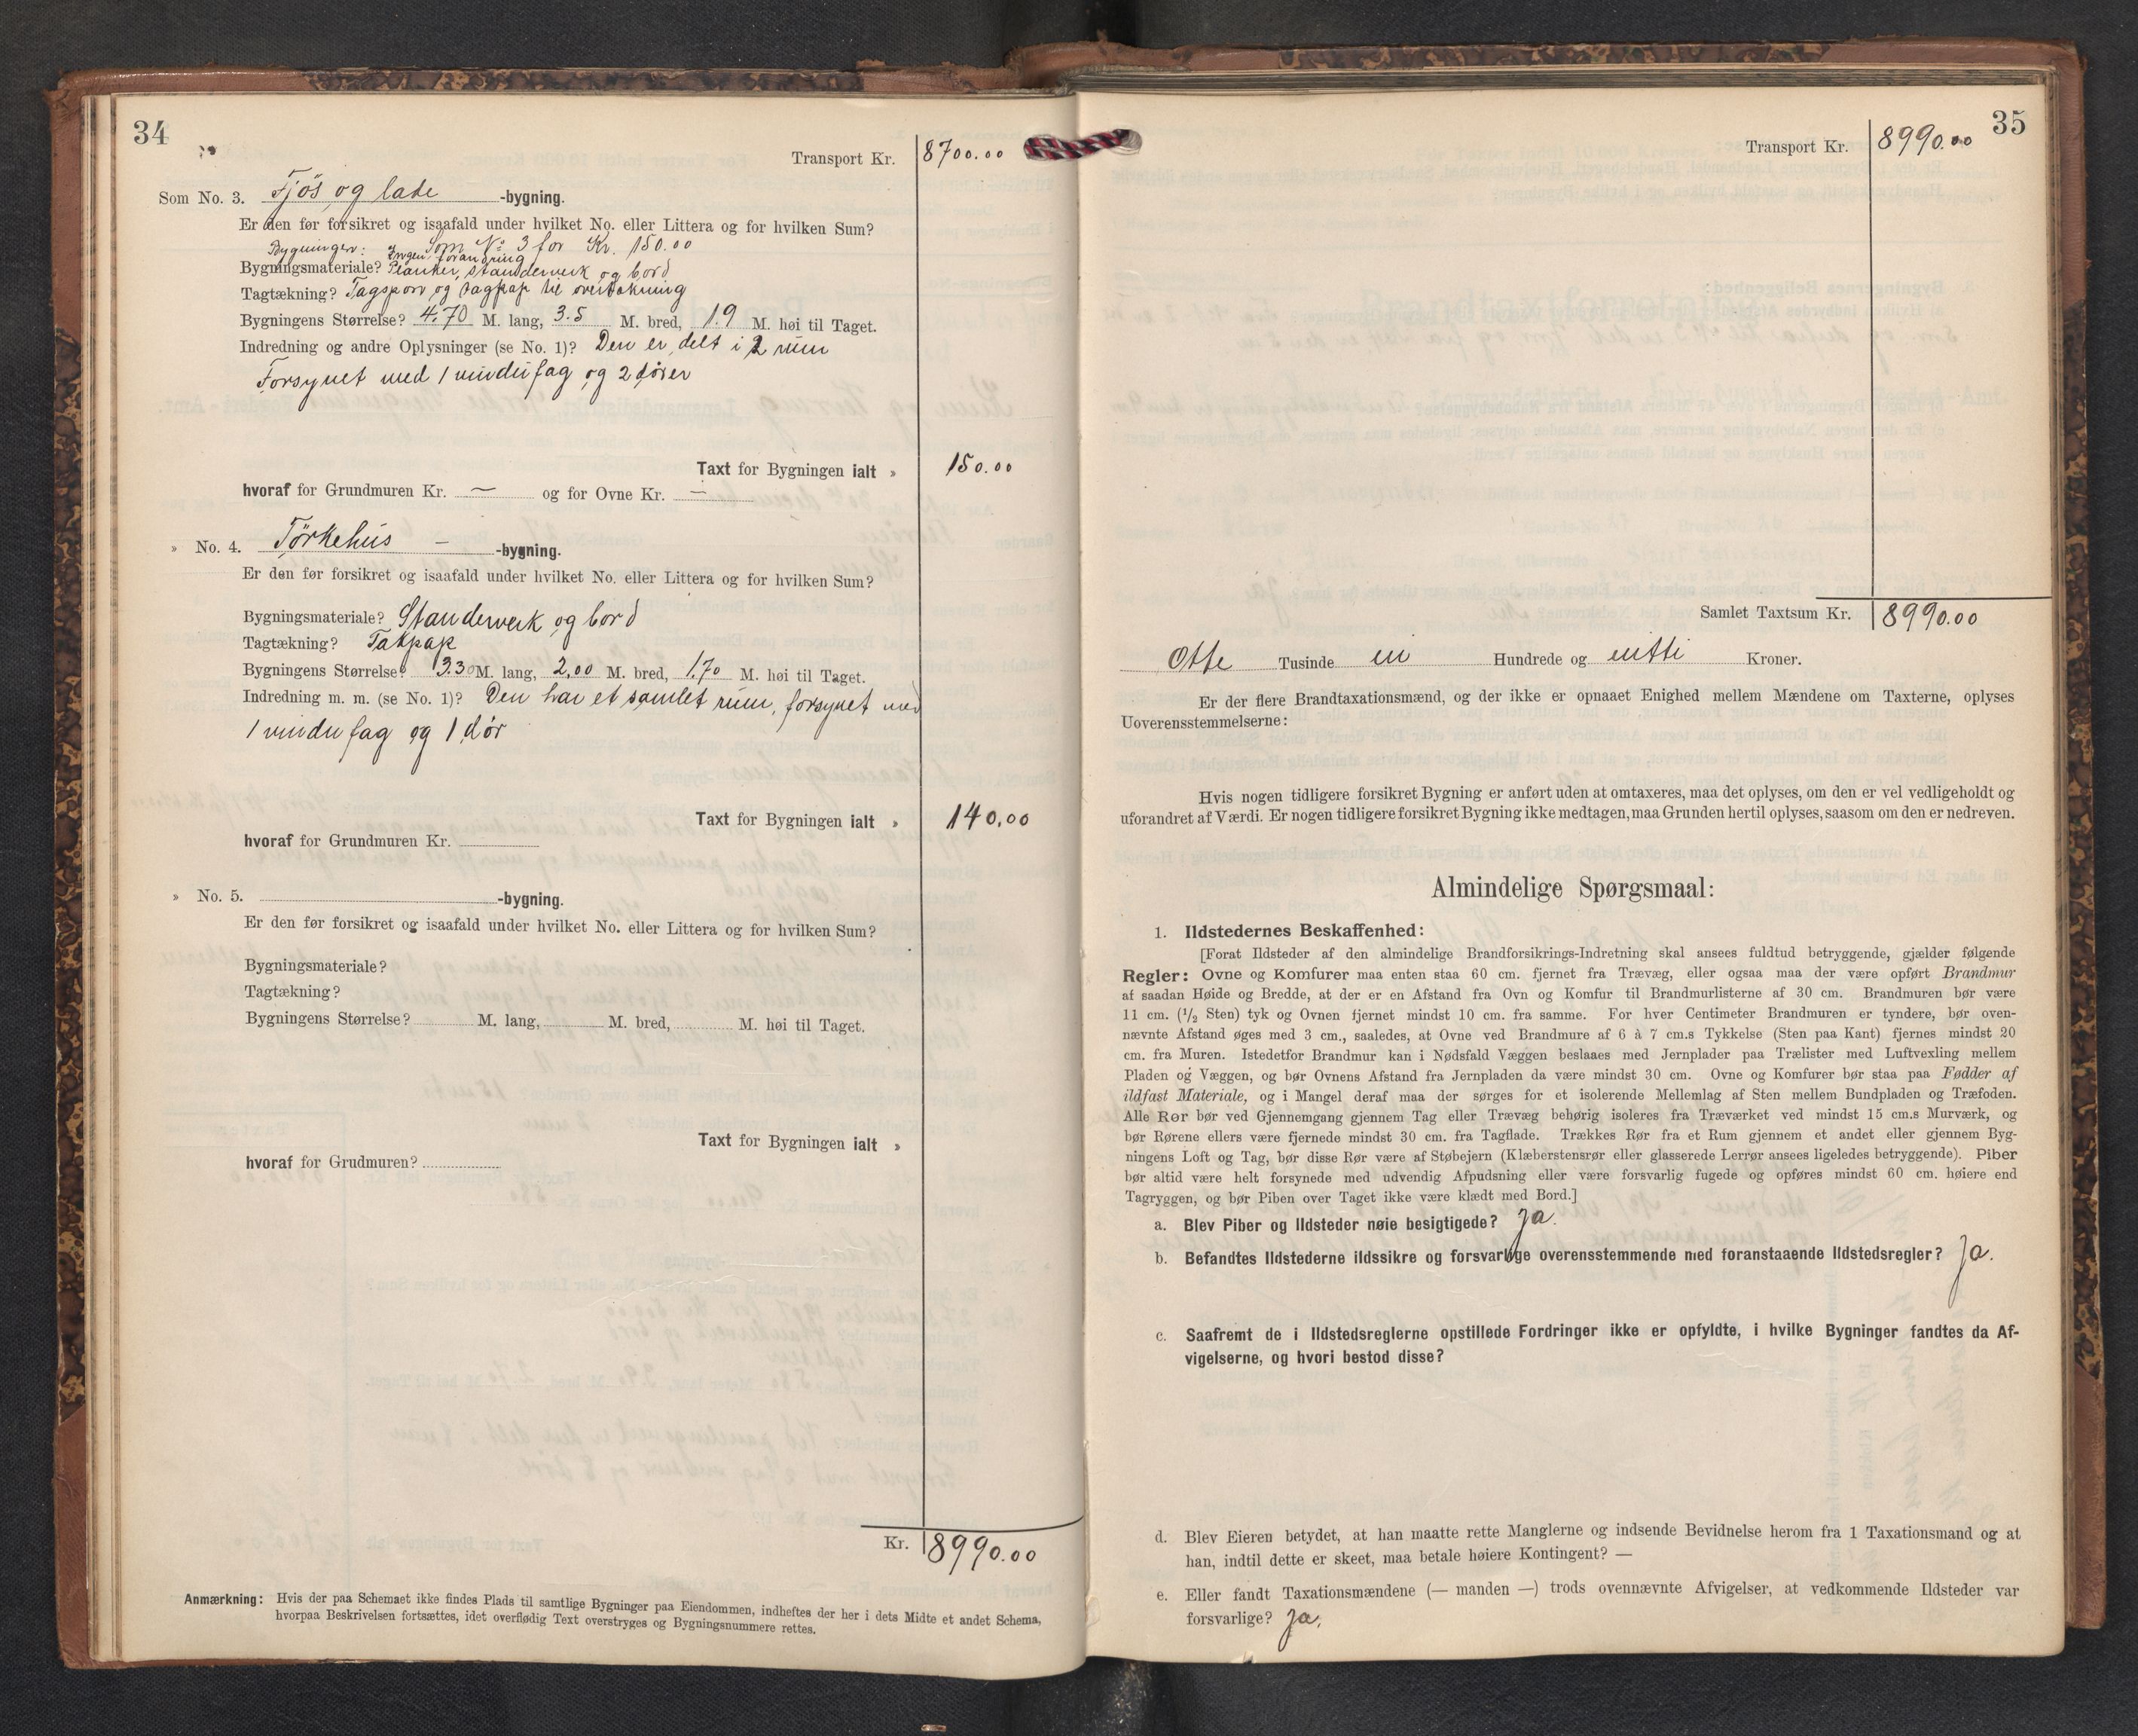 34
Transport Kr. 8700.00
Som No. 3. Fjøs og lade -bygning.
Er den før forsikret og isaafald under hvilket No. eller Littera og for hvilken Sum?
Bygninger: Som No 3 for Kr. 150.00
Ingen forandring
Bygningsmateriale? Planker, standerverk og bord
Tagtækning? Tagspon og tagpap til overtekning
Bygningens Størrelse? 4.70 M. lang, 3.5 M. bred, 1.9 M. høi til Taget.
Indredning og andre Oplysninger (se No. 1)? Den er delt i 2 rum
Forsynet med 1 vindufag og 2 dører
Taxt for Bygningen ialt » 150.00
hvoraf for Grundmuren Kr. — og for Ovne Kr. —
» No. 4. Tørkehus — -bygning.
Er den før forsikret og isaafald under hvilket No. eller Littera og for hvilken Sum?
Bygningsmateriale? Standerverk og bord
Tagtækning? Takpap
Bygningens Størrelse? 3.30 M. lang, 2,00 M. bred, 1.70 M. høi til Taget.
Indredning m. m. (se No. 1)? Den har et samlet rum, forsynet med
1 vindufag og 1 dør
Taxt for Bygningen ialt » 140,00
hvoraf for Grundmuren Kr.
» No. 5. -bygning.
Er den før forsikret og isaafald under hvilket No. eller Littera og for hvilken Sum?
Bygningsmateriale?
Tagtækning?
Bygningens Størrelse? M. lang, M. bred, M. høi til Taget.
Taxt for Bygningen ialt »
hvoraf for Grudmuren?
Kr. 8990.00
Anmærkning: Hvis der paa Schemaet ikke findes Plads til samtlige Bygninger paa Eiendommen, indheftes der her i dets Midte et andet Schema,
hvorpaa Beskrivelsen fortsættes, idet overflødig Text overstryges og Bygningsnummere rettes.
35
Transport Kr. 8990.00
Samlet Taxtsum Kr. 8990.00
Otte Tusinde ni Hundrede og nitti Kroner.
Er der flere Brandtaxationsmænd, og der ikke er opnaaet Enighed mellem Mændene om Taxterne, oplyses
Uoverensstemmelserne:
Hvis nogen tidligere forsikret Bygning er anført uden at omtaxeres, maa det oplyses, om den er vel vedligeholdt og
uforandret af Værdi. Er nogen tidligere forsikret Bygning ikke medtagen, maa Grunden hertil oplyses, saasom om den er nedreven.
Almindelige Spørgsmaal:
1. Ildstedernes Beskaffenhed:
[Forat Ildsteder af den almindelige Brandforsikrings-Indretning skal ansees fuldtud betryggende, gjælder følgende
Regler: Ovne og Komfurer maa enten staa 60 cm. fjernet fra Trævæg, eller ogsaa maa der være opført Brandmur
af saadan Høide og Bredde, at der er en Afstand fra Ovn og Komfur til Brandmurlisterne af 30 cm. Brandmuren bør være
11 cm. (1/2 Sten) tyk og Ovnen fjernet mindst 10 cm. fra samme. For hver Centimeter Brandmuren er tyndere, bør oven-
nævnte Afstand øges med 3 cm., saaledes, at Ovne ved Brandmure af 6 à 7 cm.s Tykkelse (Sten paa Kant) fjernes mindst 20
cm. fra Muren. Istedetfor Brandmur kan i Nødsfald Væggen beslaaes med Jernplader paa Trælister med Luftvexling mellem
Pladen og Væggen, og bør Ovnens Afstand fra Jernpladen da være mindst 30 cm. Ovne og Komfurer bør staa paa Fødder af
ildfast Materiale, og i Mangel deraf maa der sørges for et isolerende Mellemlag af Sten mellem Bundpladen og Træfoden.
Alle Rør bør ved Gjennemgang gjennem Tag eller Trævæg behørig isoleres fra Træverket ved mindst 15 cm.s Murværk, og
bør Rørene ellers være fjernede mindst 30 cm. fra Tagflade. Trækkes Rør fra et Rum gjennem et andet eller gjennem Byg-
ningens Loft og Tag, bør disse Rør være af Støbejern (Klæberstensrør eller glasserede Lerrør ansees ligeledes betryggende). Piber
bør altid være helt forsynede med udvendig Afpudsning eller være forsvarlig fugede og opføres mindst 60 cm. høiere end
Tagryggen, og bør Piben over Taget ikke være klædt med Bord.]
a. Blev Piber og Ildsteder nøie besigtigede? Ja.
b. Befandtes Ildstederne ildssikre og forsvarlige overensstemmende med foranstaaende Ildstedsregler? Ja.
c. Saafremt de i Ildstedsreglerne opstillede Fordringer ikke er opfyldte, i hvilke Bygninger fandtes da Af-
vigelserne, og hvori bestod disse?
d. Blev Eieren betydet, at han maatte rette Manglerne og indsende Bevidnelse herom fra 1 Taxationsmand og at
han, indtil dette er skeet, maa betale høiere Kontingent? —
e. Eller fandt Taxationsmændene (— manden —) trods ovennævnte Afvigelser, at vedkommende Ildsteder var
forsvarlige? Ja.